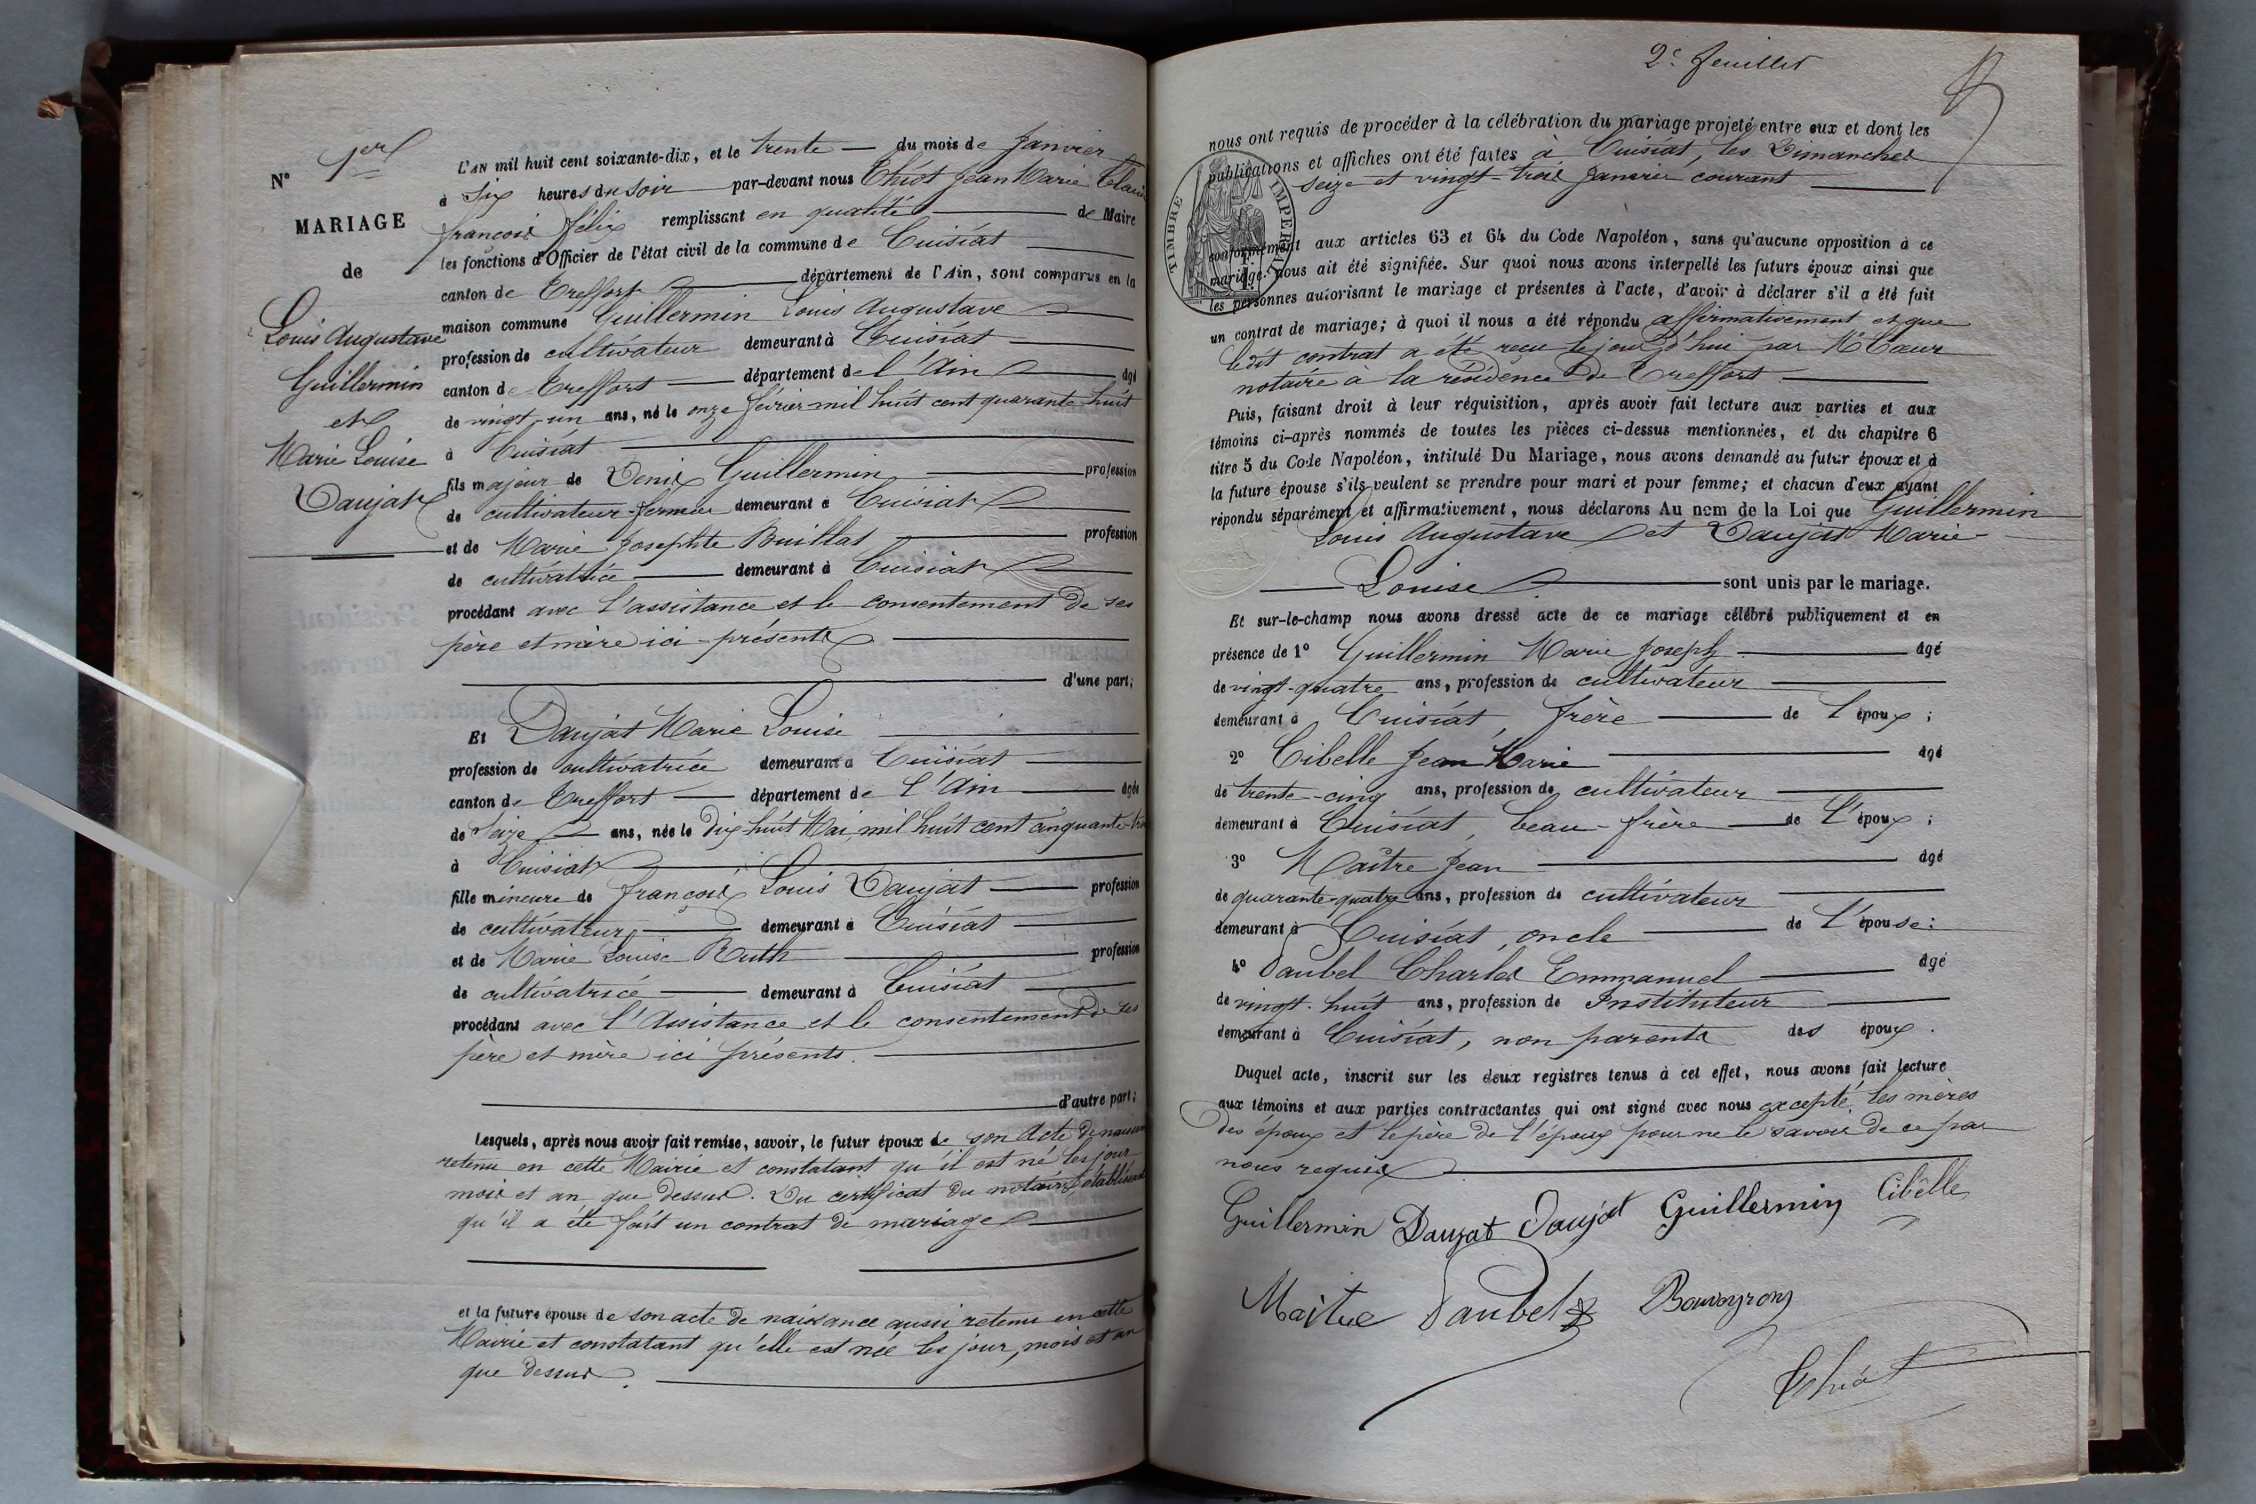 N° 1er
MARIAGE
de
Louis Augustave
Guillermin
et
Marie Louise
Daujat
L'AN mil huit cent soixante-dix, et le trente du mois de Janvier
à Six heures du soir par-devant nous Chiot Jean Marie Claude
françois félix remplissant en qualité de Maire
les fonctions d'Officier de l'état civil de la commune de Cuisiat
canton de Treffort département de l'Ain, sont comparus en la
maison commune Guillermin Louis Augustave
profession de cultivateur demeurant à Cuisiat
canton de Treffort département de l'Ain âgé
de vingt-un ans, né le onze février mil huit cent quarante-huit
à Cuisiat
fils majeur de Denis Guillermin profession
de cultivateur-fermier demeurant à Cuisiat
et de Marie Josephte Buillat profession
de cultivatrice demeurant à Cuisiat
procédant avec l'assistance et le consentement de ses
père et mère ici-présents
d'une part;
Et Daujat Marie Louise
profession de cultivatrice demeurant à Cuisiat
canton de Treffort département de l'Ain âgée
de Seize ans, née le dix huit Mai mil huit cent cinquante-trois
à Cuisiat
fille mineure de françois Louis Daujat profession
de cultivateur demeurant à Cuisiat
et de Marie Louise Ruth profession
de cultivatrice demeurant à Cuisiat
procédant avec l'Assistance et le consentement de ses
père et mère ici présents.
d'autre part;
Lesquels, après nous avoir fait remise, savoir, le futur époux de son acte de naissance
retenu en cette Mairie et constatant qu'il est né les jour
mois et an que dessus. Du certificat du notaire établissant
qu'il a été fait un contrat de mariage
et la future épouse de son acte de naissance aussi retenu en cette
Mairie et constatant qu'elle est née les jour, mois et an
que dessus.
2e feuillet
nous ont requis de procéder à la célébration du mariage projeté entre eux et dont les
publications et affiches ont été faites à Cuisiat, les Dimanches
seize et vingt-trois Janvier courant
TIMBRE IMPERIAL
conformément aux articles 63 et 64 du Code Napoléon, sans qu'aucune opposition à ce
mariage nous ait été signifiée. Sur quoi nous avons interpellé les futurs époux ainsi que
les personnes autorisant le mariage et présentes à l'acte, d'avoir à déclarer s'il a été fait
un contrat de mariage; à quoi il nous a été répondu affirmativement et que
ledit contrat a été reçu le jour d'hui par Me Cœur
notaire à la résidence de Treffort
Puis, faisant droit à leur réquisition, après avoir fait lecture aux parties et aux
témoins ci-après nommés de toutes les pièces ci-dessus mentionnées, et du chapitre 6
titre 5 du Code Napoléon, intitulé Du Mariage, nous avons demandé au futur époux et à
la future épouse s'ils veulent se prendre pour mari et pour femme; et chacun d'eux ayant
répondu séparément et affirmativement, nous déclarons Au nom de la Loi que Guillermin
Louis Augustave et Daujat Marie
Louise sont unis par le mariage.
Et sur-le-champ nous avons dressé acte de ce mariage célébré publiquement et en
présence de 1° Guillermin Marie Joseph âgé
de vingt-quatre ans, profession de cultivateur
demeurant à Cuisiat, frère de l'époux;
2° Cibelle Jean Marie âgé
de trente-cinq ans, profession de cultivateur
demeurant à Cuisiat, beau-frère de l'époux;
3° Maître Jean âgé
de quarante-quatre ans, profession de cultivateur
demeurant à Cuisiat, oncle de l'épouse:
4° Daubel Charles Emmanuel âgé
de vingt-huit ans, profession de Instituteur
demeurant à Cuisiat, non parent des époux.
Duquel acte, inscrit sur les deux registres tenus à cet effet, nous avons fait lecture
aux témoins et aux parties contractantes qui ont signé avec nous excepté les mères
des époux et le père de l'époux pour ne le savoir de ce par
nous requis
Guillermin Daujat Daujat Guillermin Cibelle
Maître Daubel Bouvyron
Chiot